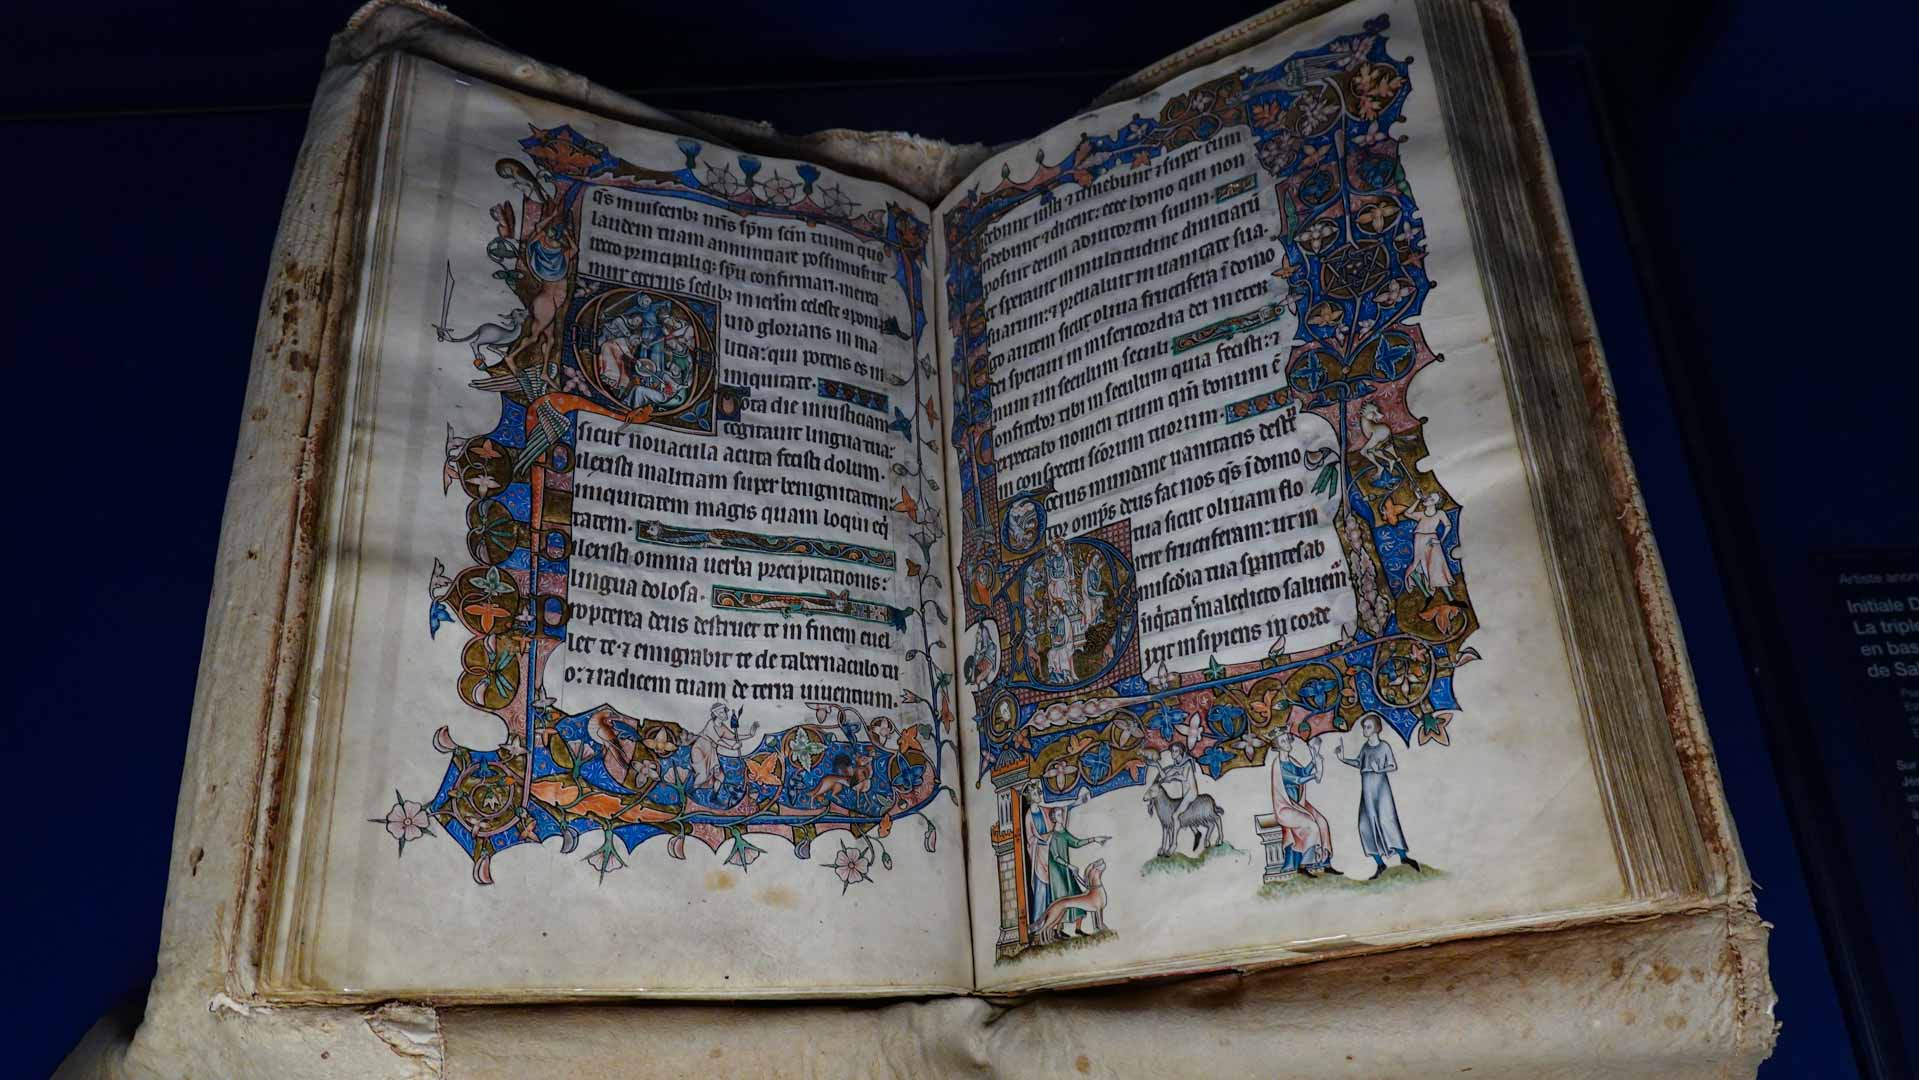 q̄s in uisceribꝫ nr̄is sp̄m sc̄m tuum quo
laudem tuam annunciare possimus ut
recto principali qꝫ sp̄u confirmari merea
mur eternis sedibꝫ in ierl̄m celeste ꝯpona
Quid gloriaris in ma
litia: qui potens es in
iniquitate.
Tota die iniusticiam
cogitauit lingua tua:
sicut nouacula acuta fecisti dolum.
Dilexisti malitiam super benignitatem
iniquitatem magis quam loqui eq̄
tatem.
Dilexisti omnia uerba precipitationis:
lingua dolosa.
Propterea deus destruet te in finem euel
let te ⁊ emigrabit te de tabernaculo tu
o: ⁊ radicem tuam de terra uiuentium.
Videbunt iusti ⁊ timebunt ⁊ super eum
ridebunt ⁊ dicent: ecce homo qui non
posuit deum adiutorem suum.
et sperauit in multitudine diuitiarū
suarum: ⁊ preualuit in uanitate sua.
Ego autem sicut oliua fructifera ī domo
dei speraui in misericordia dei in eter
num ⁊ in seculum seculi
Confitebor tibi in seculum quia fecisti: ⁊
expectabo nomen tuum qm̄ bonum ē
in conspectu sc̄orum tuorum.
Decius mundane uanitatis destr
tor omp̄s deus fac nos q̄s ī domo
tua sicut oliuam flo
rere fructiferam: ut in
mis̄cdīa tua sperantes ab
iniq̄tatī maledicto saluem̄
Dixit insipiens in corde
Artiste anon
Initiale D
La triple
en bas
de Sa
Sur